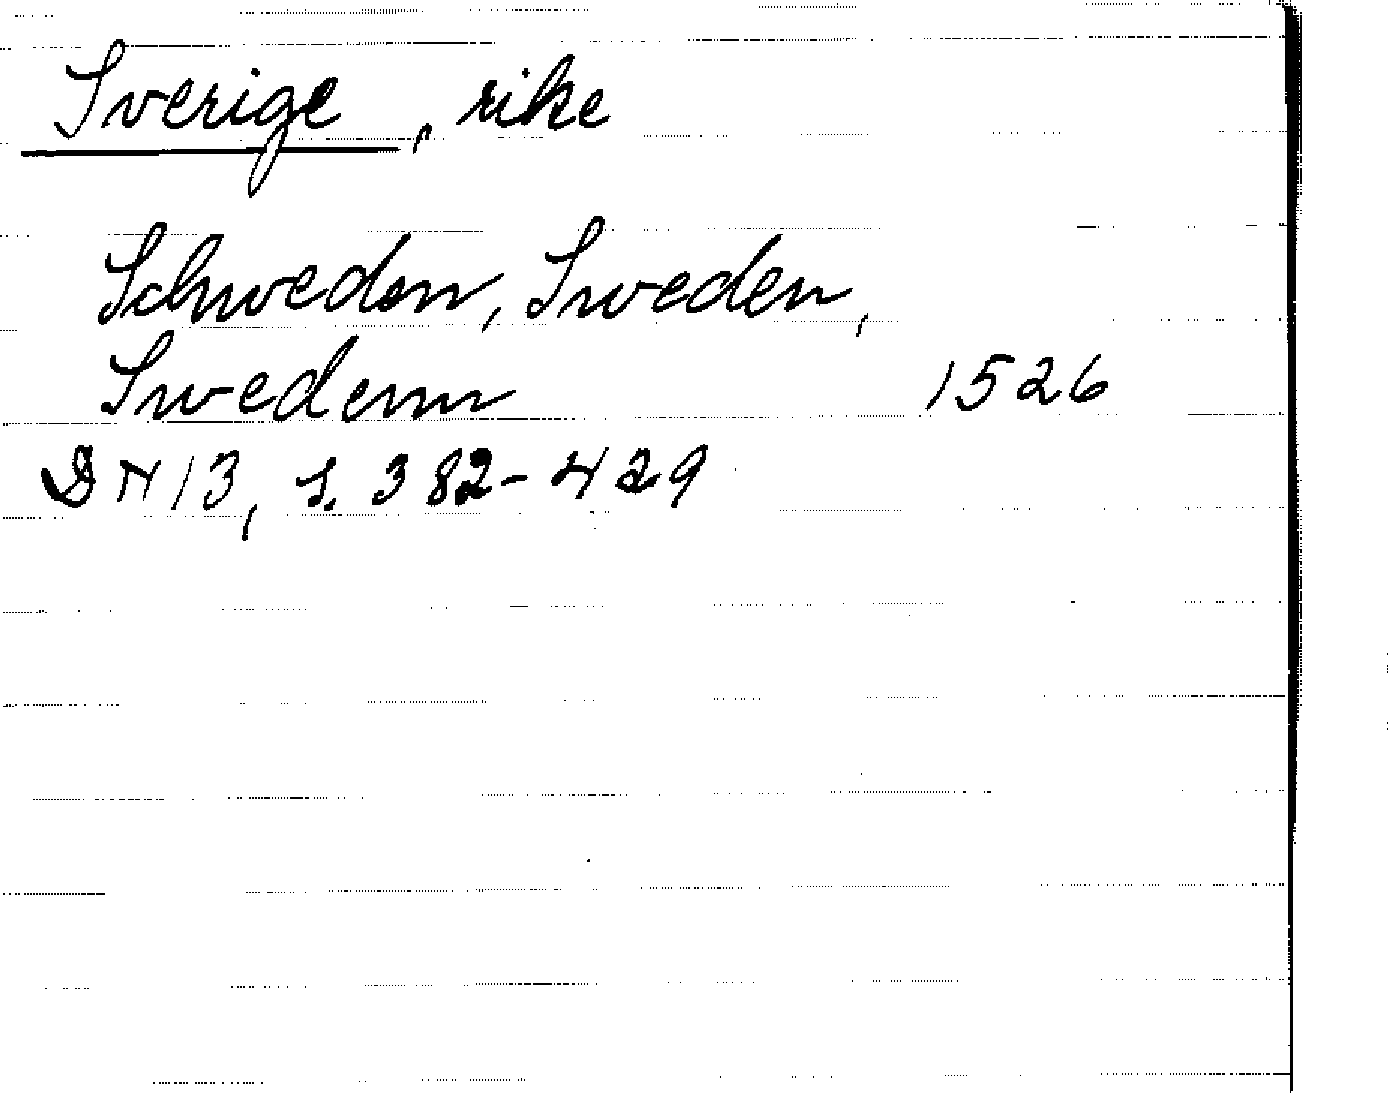 Sverige, rike
Schweden, Sweden,
Swedenn 1526
DN 13, s. 382-429